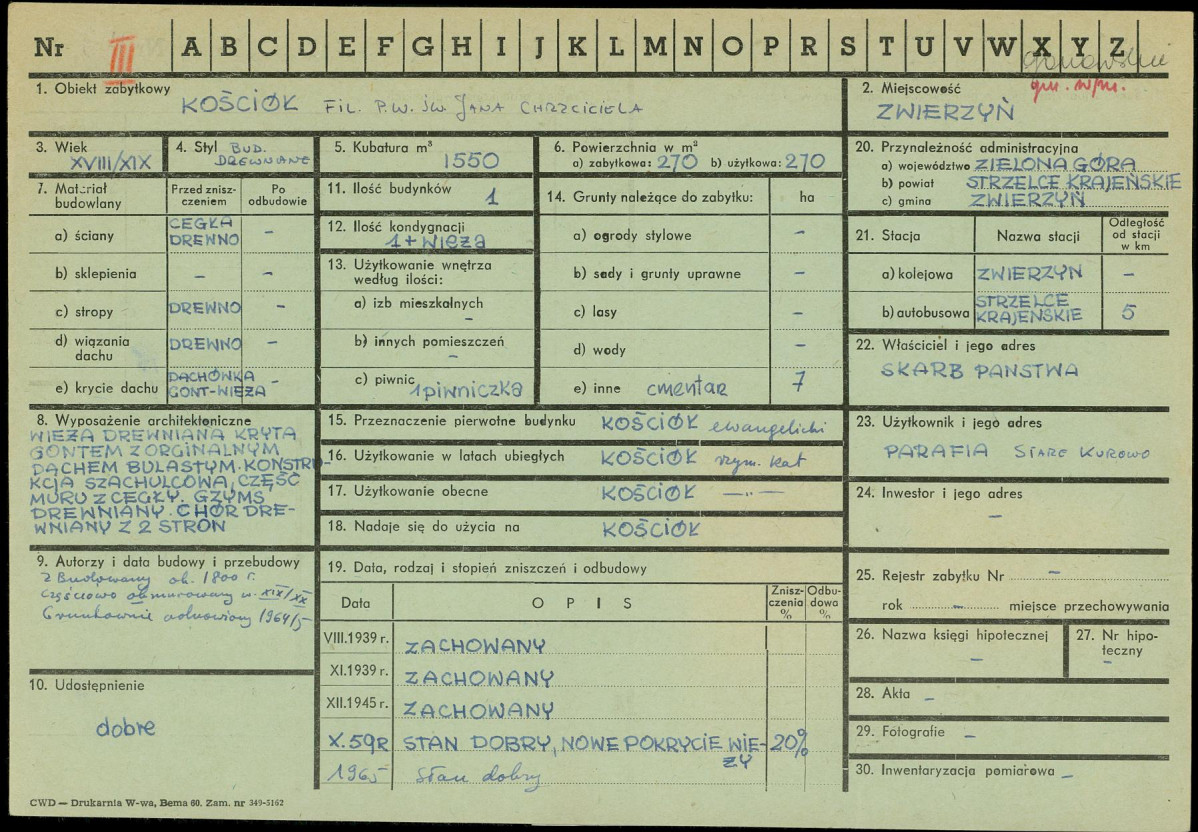 Nr III A B C D E F G H I J K L M N O P R S T U V W X Y Z
gm. w/m.
1. Obiekt zabytkowy
KOŚCIÓŁ FIL. P.W. ŚW. JANA CHRZCICIELA
2. Miejscowość
ZWIERZYŃ
3. Wiek
XVIII/XIX
4. Styl BUD.
DREWNIANE
5. Kubatura m³
1550
6. Powierzchnia w m²
a) zabytkowa: 270 b) użytkowa: 270
20. Przynależność administracyjna
a) województwo ZIELONA GÓRA
b) powiat STRZELCE KRAJEŃSKIE
c) gmina ZWIERZYŃ
7. Materiał
budowlany
Przed znisz-
czeniem
Po
odbudowie
a) ściany
CEGŁA
DREWNO
-
b) sklepienia - -
c) stropy DREWNO -
d) wiązania
dachu
DREWNO -
e) krycie dachu
DACHÓWKA
GONT-WIEŻA
-
11. Ilość budynków
1
12. Ilość kondygnacji
1 + wieża
13. Użytkowanie wnętrza
według ilości:
a) izb mieszkalnych
-
b) innych pomieszczeń
-
c) piwnic
1 piwniczka
14. Grunty należące do zabytku: ha
a) ogrody stylowe -
b) sady i grunty uprawne -
c) lasy -
d) wody -
e) inne cmentarz 7
21. Stacja Nazwa stacji
Odległość
od stacji
w km
a) kolejowa ZWIERZYN -
b) autobusowa
STRZELCE
KRAJEŃSKIE
5
22. Właściciel i jego adres
SKARB PAŃSTWA
8. Wyposażenie architektoniczne
WIEŻA DREWNIANA KRYTA
GONTEM Z ORGINALNYM
DACHEM BULASTYM. KONSTRU-
KCJA SZACHULCOWA, CZĘŚĆ
MURU Z CEGŁY. GZYMS
DREWNIANY. CHÓR DRE-
WNIANY Z 2 STRON
15. Przeznaczenie pierwotne budynku KOŚCIÓŁ ewangelicki
16. Użytkowanie w latach ubiegłych KOŚCIÓŁ rzym. kat
17. Użytkowanie obecne KOŚCIÓŁ -„-
18. Nadaje się do użycia na KOŚCIÓŁ
23. Użytkownik i jego adres
PARAFIA STARE KUROWO
24. Inwestor i jego adres
-
9. Autorzy i data budowy i przebudowy
Zbudowany ok. 1800 r.
częściowo obmurowany w. XIX/XX
Gruntownie odnowiony 1964/5
10. Udostępnienie
dobre
19. Data, rodzaj i stopień zniszczeń i odbudowy
Data OPIS
Znisz-
czenia
%
Odbu-
dowa
%
VIII.1939 r. ZACHOWANY
XI.1939 r. ZACHOWANY
XII.1945 r. ZACHOWANY
X.59R STAN DOBRY, NOWE POKRYCIE WIE- 20%
ŻY
1965 Stan dobry
25. Rejestr zabytku Nr -
rok - miejsce przechowywania
26. Nazwa księgi hipotecznej
-
27. Nr hipo-
teczny
-
28. Akta -
29. Fotografie -
30. Inwentaryzacja pomiarowa -
CWD — Drukarnia W-wa, Bema 60. Zam. nr 349-5162